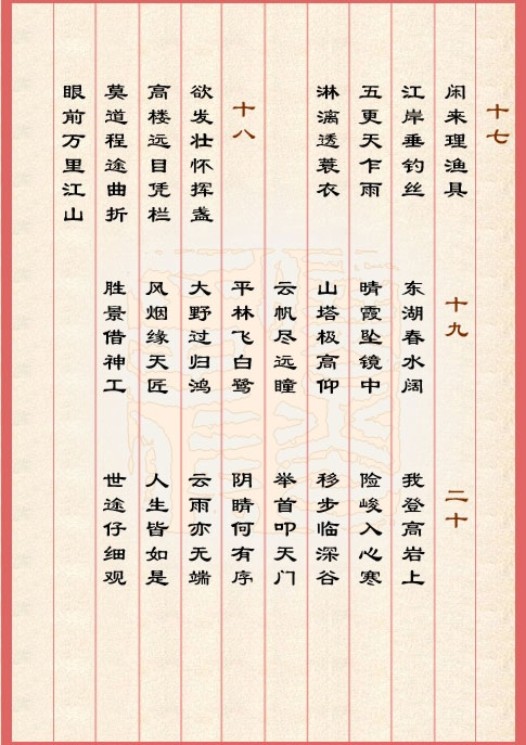 十七
闲来理渔具
江岸垂钓丝
五更天乍雨
淋漓透蓑衣
十八
欲发壮怀挥盏
高楼远目凭栏
莫道程途曲折
眼前万里江山
十九
东湖春水阔
晴霞坠镜中
山塔极高仰
云帆尽远瞳
平林飞白鹭
大野过归鸿
风烟缘天匠
胜景借神工
二十
我登高岩上
险峻入心寒
移步临深谷
举首叩天门
阴晴何有序
云雨亦无端
人生皆如是
世途仔细观